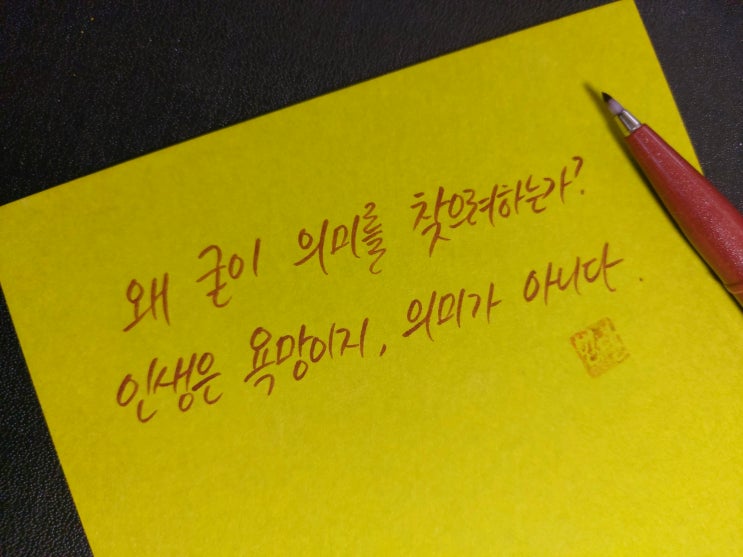 왜 굳이 의미를 찾으려하는가?
인생은 욕망이지, 의미가 아니다.